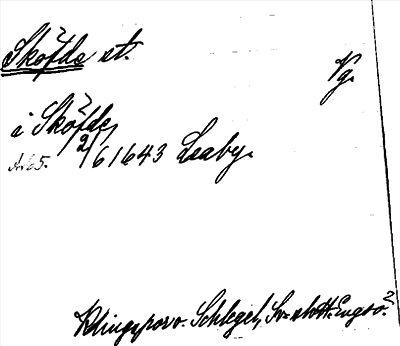 Sköfde st. Vg.
i Sköfde,
2/6 1643 Lsaby.
Klingspor o. Schlegel, Sv. slott: Engsö.